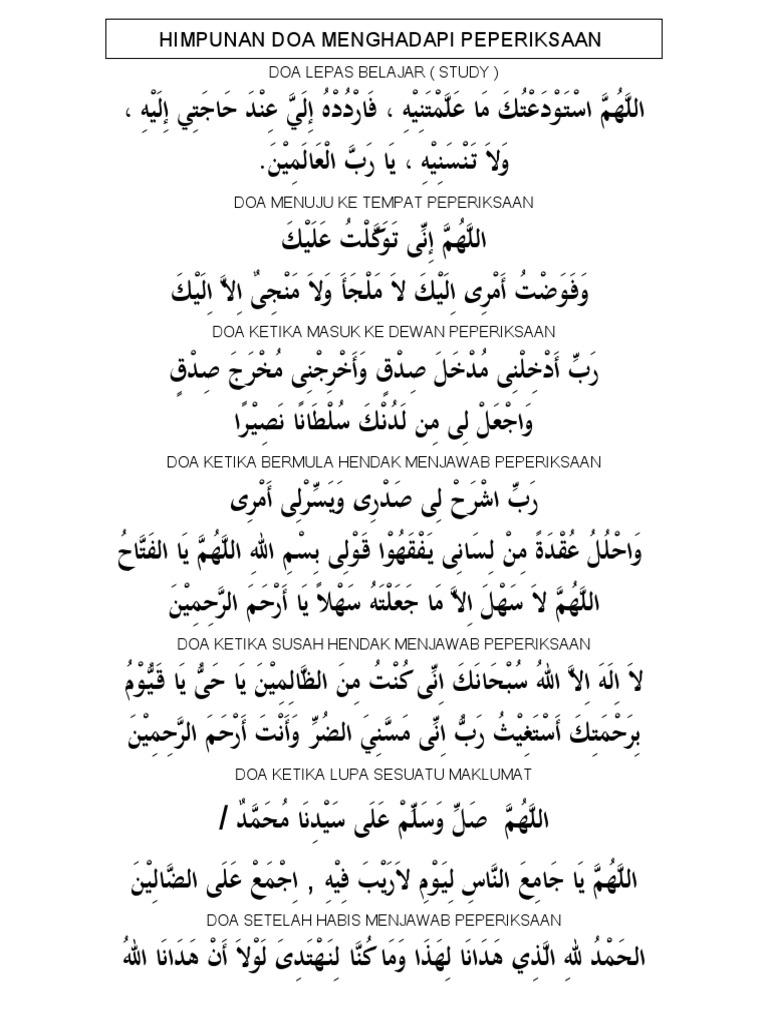 HIMPUNAN DOA MENGHADAPI PEPERIKSAAN
DOA LEPAS BELAJAR ( STUDY )
اللَّهُمَّ اسْتَوْدَعْتُكَ مَا عَلَّمْتَنِيْهِ ، فَارْدُدْهُ إِلَيَّ عِنْدَ حَاجَتِي إِلَيْهِ ،
وَلاَ تَنْسَنِيْهِ ، يَا رَبَّ الْعَالَمِيْنَ.
DOA MENUJU KE TEMPAT PEPERIKSAAN
اللَّهُمَّ إِنِّى تَوَكَّلْتُ عَلَيْكَ
وَفَوَضْتُ أَمْرِى اِلَيْكَ لاَ مَلْجَأَ وَلاَ مَنْجِىٌ اِلاَّ اِلَيْكَ
DOA KETIKA MASUK KE DEWAN PEPERIKSAAN
رَبِّ أَدْخِلْنِى مُدْخَلَ صِدْقٍ وَأَخْرِجْنِى مُخْرَجَ صِدْقٍ
وَاجْعَلْ لِى مِن لَدُنْكَ سُلْطَانًا نَصِيْرًا
DOA KETIKA BERMULA HENDAK MENJAWAB PEPERIKSAAN
رَبِّ اشْرَحْ لِى صَدْرِى وَيَسِّرْلِى أَمْرِى
وَاحْلُلُ عُقْدَةً مِنْ لِسَانِى يَفْقَهُوْا قَوْلِى بِسْمِ اللهِ اللَّهُمَّ يَا الفَتَّاحُ
اللَّهُمَّ لاَ سَهْلَ اِلاَّ مَا جَعَلْتَهُ سَهْلاً يَا أَرْحَمَ الرَّحِمِيْنَ
DOA KETIKA SUSAH HENDAK MENJAWAB PEPERIKSAAN
لاَ اِلَهَ اِلاَّ اللهُ سُبْحَانَكَ اِنِّى كُنْتُ مِنَ الظَّالِمِيْنَ يَا حَىُّ يَا قَيُّوْمُ
بِرَحْمَتِكَ أَسْتَغِيْثُ رَبُّ اِنِّى مَسَّنِيَ الضُرِّ وَأَنْتَ أَرْحَمَ الرَّحِمِيْنَ
DOA KETIKA LUPA SESUATU MAKLUMAT
اللَّهُمَّ صَلِّ وَسَلِّمْ عَلَى سَيْدِنَا مُحَمَّدٌ /
اللَّهُمَّ يَا جَامِعَ النَّاسِ لِيَوْمِ لاَرَيْبَ فِيْهِ , اِجْمَعْ عَلَى الضَّالِيْنَ
DOA SETELAH HABIS MENJAWAB PEPERIKSAAN
الحَمْدُ للهِ الَّذِي هَدَانَا لِهَذَا وَمَا كُنَّا لِنَهْتَدِىَ لَوْلاَ أَنْ هَدَانَا اللهُ